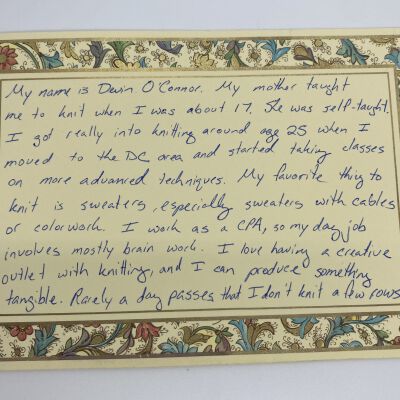 My name is Devin O'Connor. My mother taught
me to knit when I was about 17. She was self-taught.
I got really into knitting around age 25 when I
moved to the DC area and started taking classes
on more advanced techniques. My favorite thing to
knit is sweaters, especially sweaters with cables
or colorwork. I work as a CPA, so my day job
involves mostly brain work. I love having a creative
outlet with knitting, and I can produce something
tangible. Rarely a day passes that I don't knit a few rows